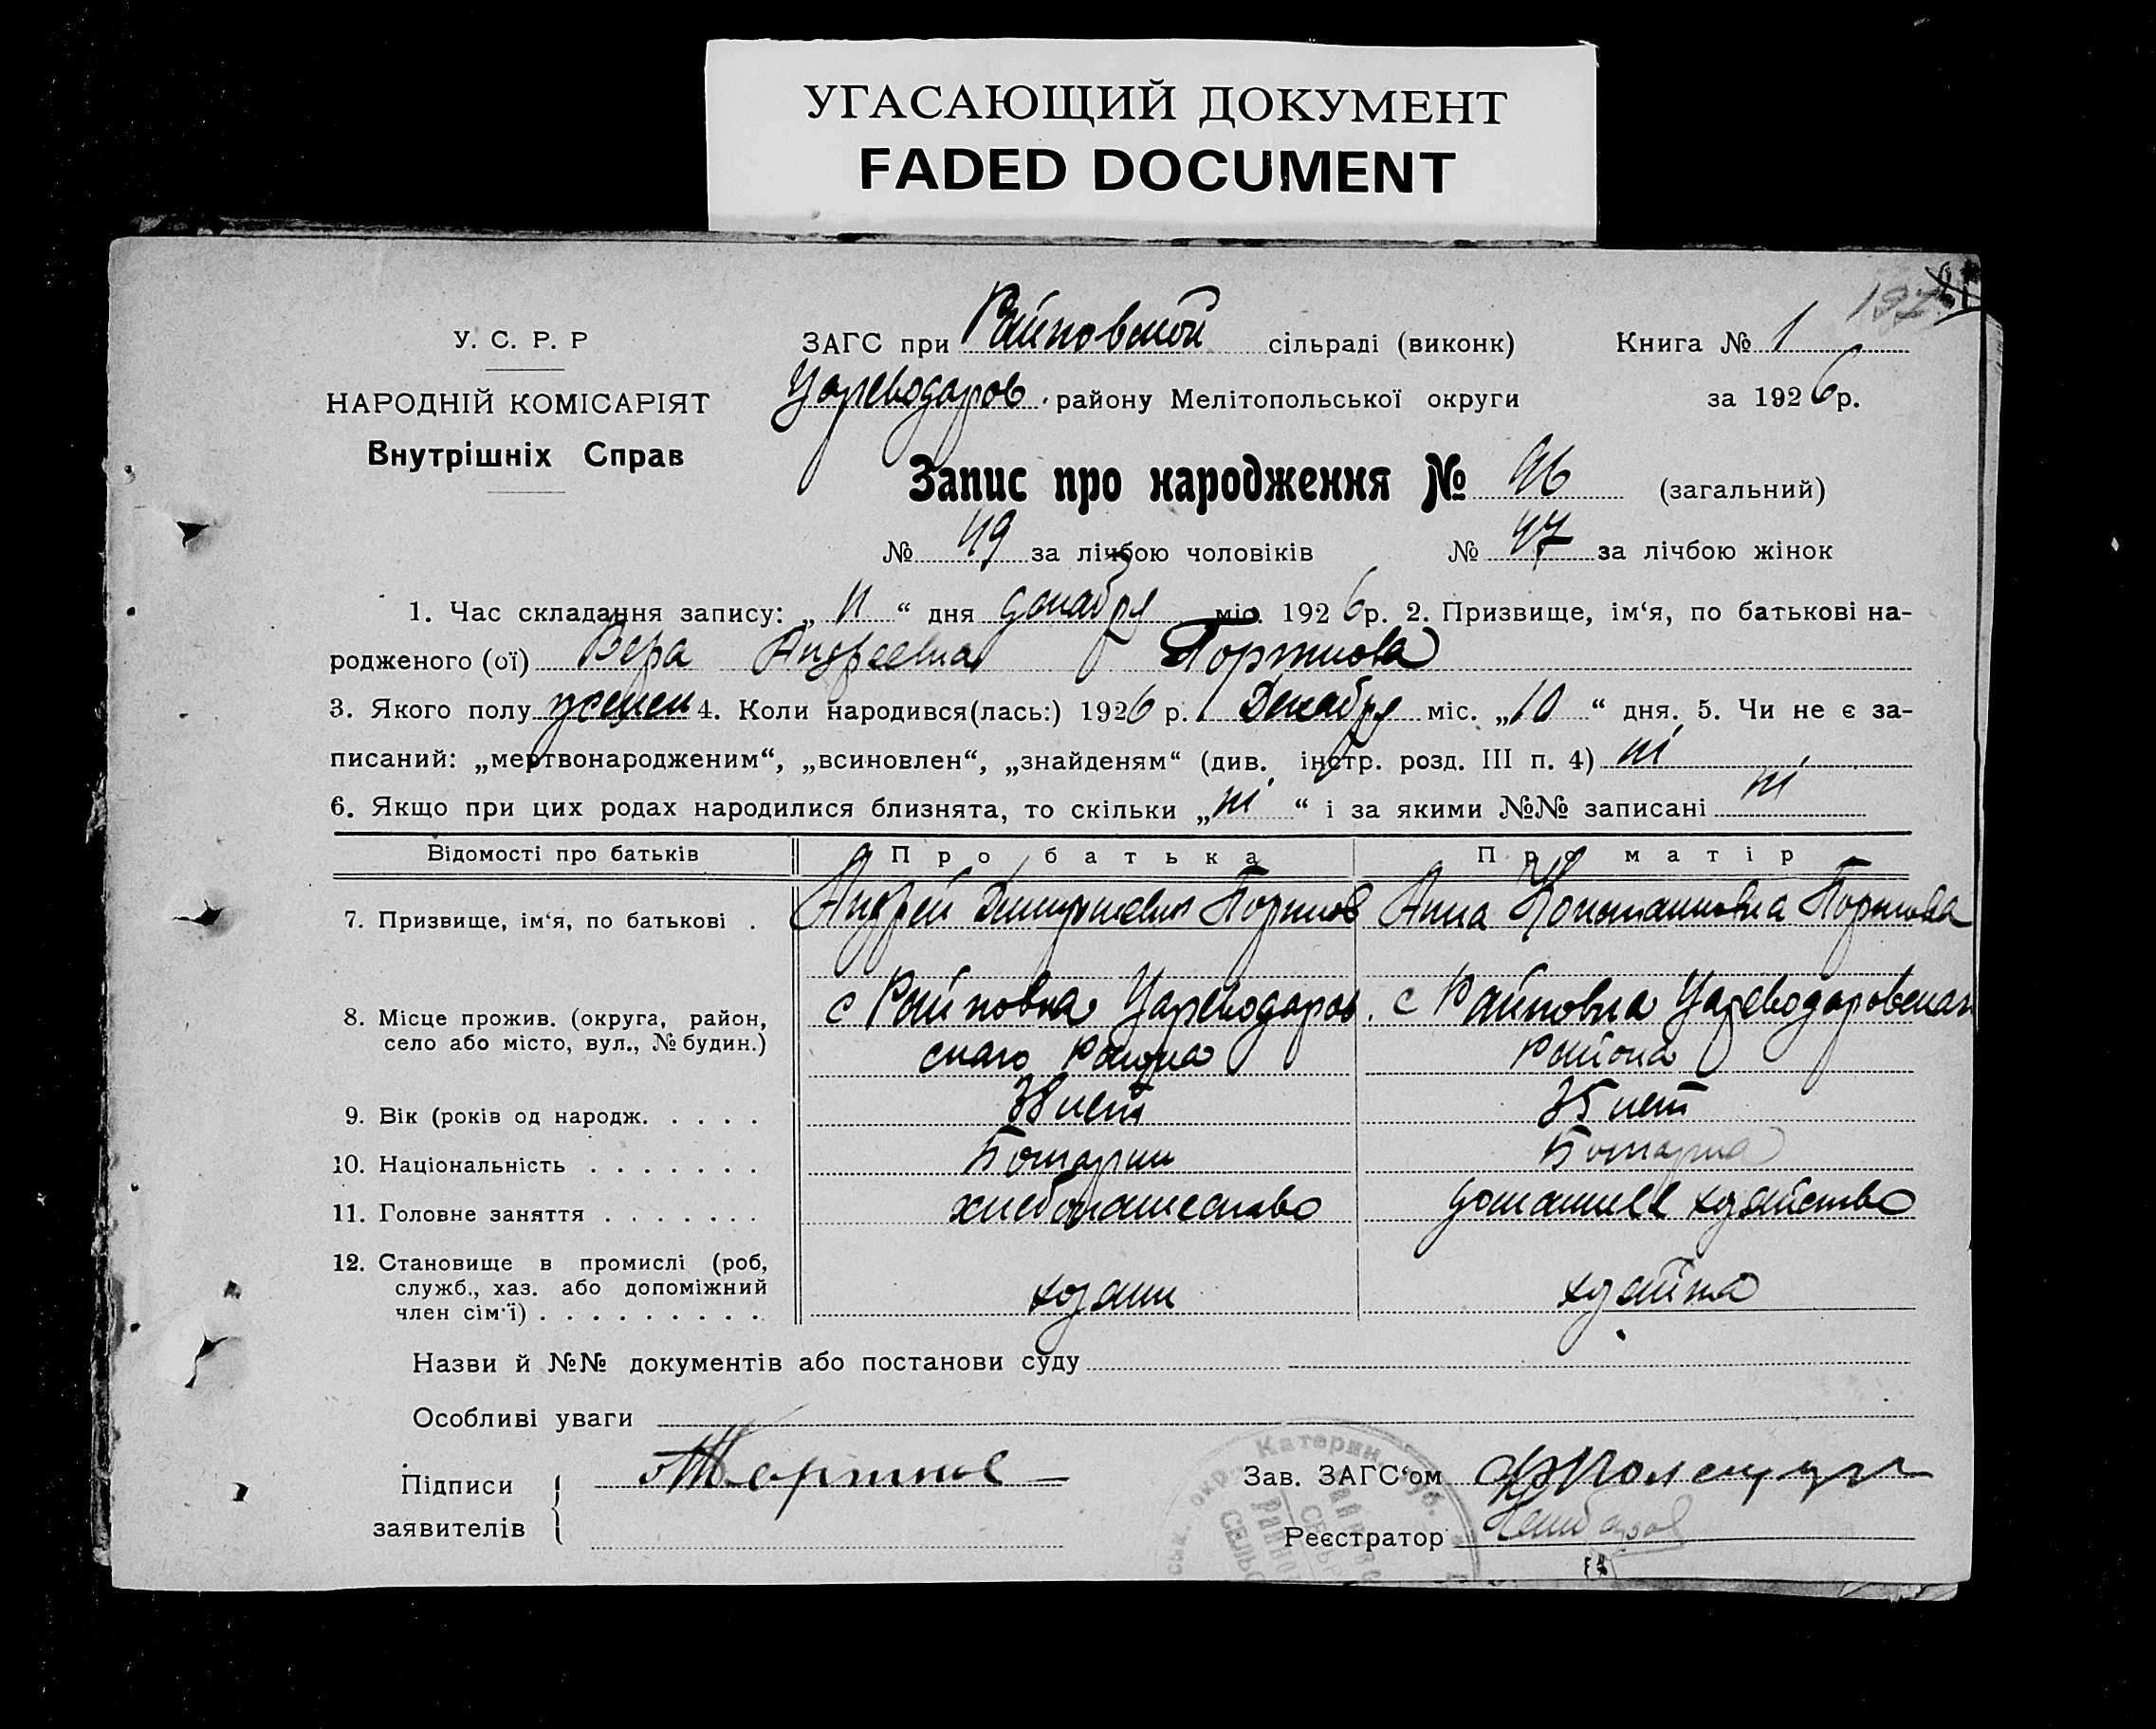 УГАСАЮЩИЙ ДОКУМЕНТ
FADED DOCUMENT
У. С. Р. Р
НАРОДНІЙ КОМІСАРІЯТ
Внутрішніх Справ
ЗАГС при Райновской сільраді (виконк) Книга № 1
Цареводаров. району Мелітопольської округи за 1926 р.
Запис про народження № 96 (загальний)
№ 49 за лічбою чоловіків № 47 за лічбою жінок
1. Час складання запису: „ 11 “ дня декабря міс. 1926 р. 2. Призвище, ім‘я, по батькові на-
родженого (ої) Вера Андреевна Портнова
3. Якого полу женск 4. Коли народився(лась:) 1926 р. Декабря міс. „10 “ дня. 5. Чи не є за-
писаний: „мертвонародженим“, „всиновлен“, „знайденям“ (див. інстр. розд. III п. 4) ні
6. Якщо при цих родах народилися близнята, то скільки „ні “ і за якими №№ записані ні
Відомості про батьків Про батька Про матір
7. Призвище, ім‘я, по батькові . Андрей Дмитриевич Портнов Анна Константиновна Портнова
8. Місце прожив. (округа, район, село або місто, вул., № будин.) с Райновка Цареводаров. с Райновка Цареводаровскаго
скаго Района Района
9. Вік (років од народж. . . . . 38 лет 35 лет
10. Національність . . . . . . . Болгарин Болгарка
11. Головне заняття . . . . . . . хлебопашество домашнее хозяйство
12. Становище в промислі (роб,
служб., хаз. або допоміжний
член сім‘ї) . . . . . . . . . хозяин хозяйка
Назви й №№ документів або постанови суду
Особливі уваги
Підписи
заявителів
Портнов
Зав. ЗАГС‘ом
Реєстратор
Катерин.
окр.